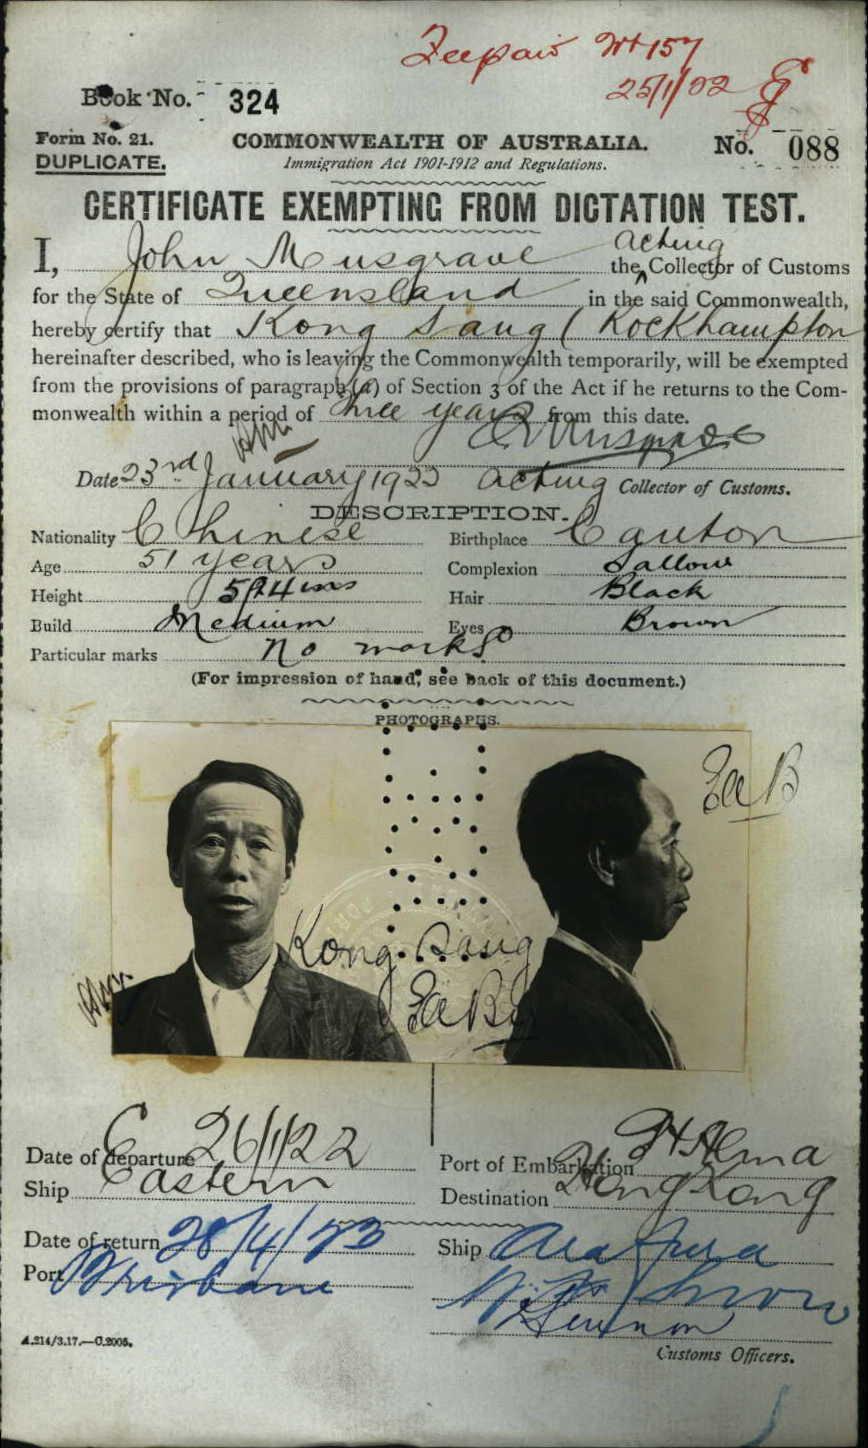 Fee paid
25/1/22
Book No. 324
Form No. 21.
DUPLICATE.
COMMONWEALTH OF AUSTRALIA.
Immigration Act 1901-1912 and Regulations.
No. 088
CERTIFICATE EXEMPTING FROM DICTATION TEST.
I, John Musgrave the Acting Collector of Customs
for the State of Queensland in the said Commonwealth,
hereby certify that Kong Sang (Rockhampton
hereinafter described, who is leaving the Commonwealth temporarily, will be exempted
from the provisions of paragraph (a) of Section 3 of the Act if he returns to the Com-
monwealth within a period of three years from this date.
Musgrave
Date 23rd January 1922 Acting Collector of Customs.
DESCRIPTION.
Nationality Chinese Birthplace Canton
Age 51 years Complexion Sallow
Height 5ft 4 ins Hair Black
Build Medium Eyes Brown
Particular marks No marks
(For impression of hand, see back of this document.)
PHOTOGRAPHS.
Kong Sang
Date of departure 26/1/22 Port of Embarkation
Ship Eastern Destination Hong Kong
Date of return 28/4/23 Ship Arafura
Port Brisbane
Customs Officers.
A.214/3.17.—C.2005.